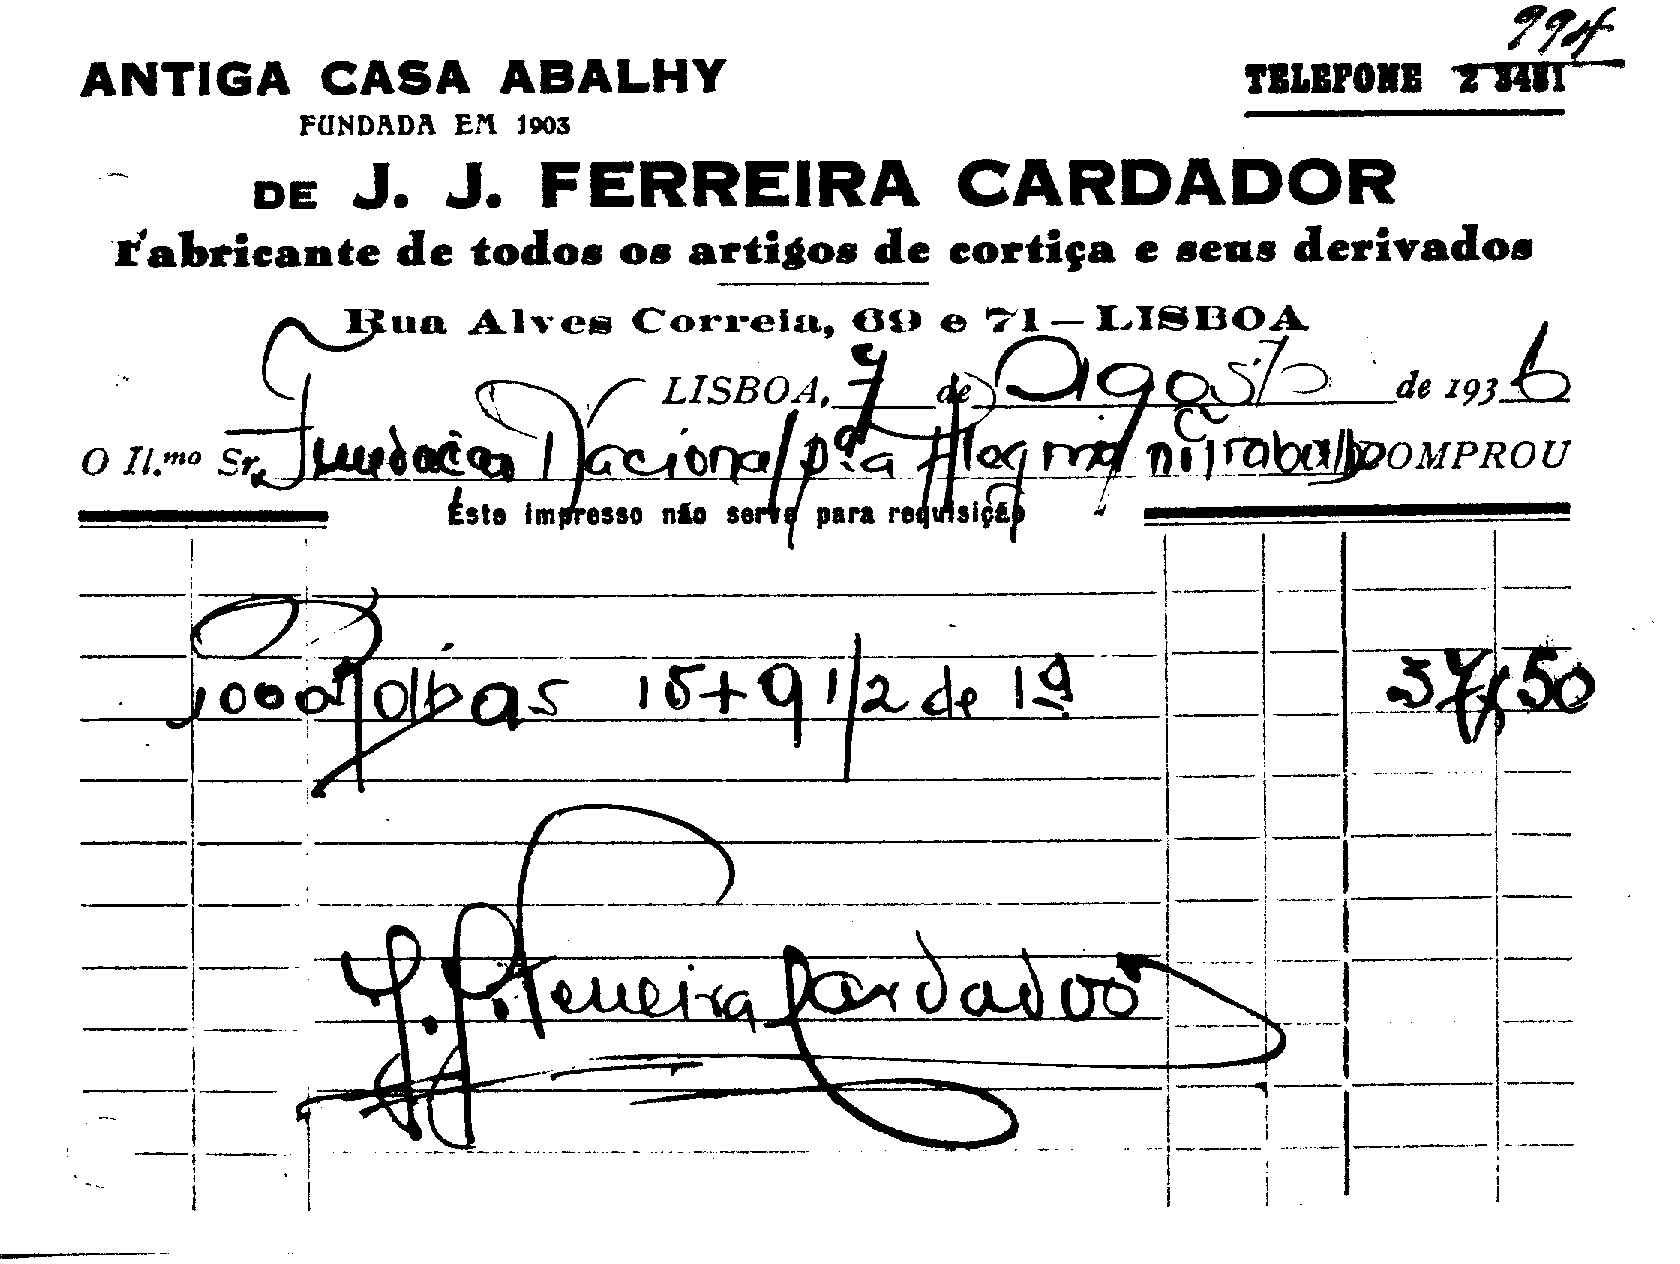 994
ANTIGA CASA ABALHY
TELEFONE 2 8481
FUNDADA EM 1903
DE J. J. FERREIRA CARDADOR
Fabricante de todos os artigos de cortiça e seus derivados
Rua Alves Correia, 69 e 71 — LISBOA
LISBOA, 7 de Agosto de 1936
O Il.mo Sr. Fundação Nacional pª a Alegria no Trabalho COMPROU
Este impresso não serve para requisição
1000 Rolhas 15+9 1/2 de 1ª 37$50
J. J. Ferreira Cardador